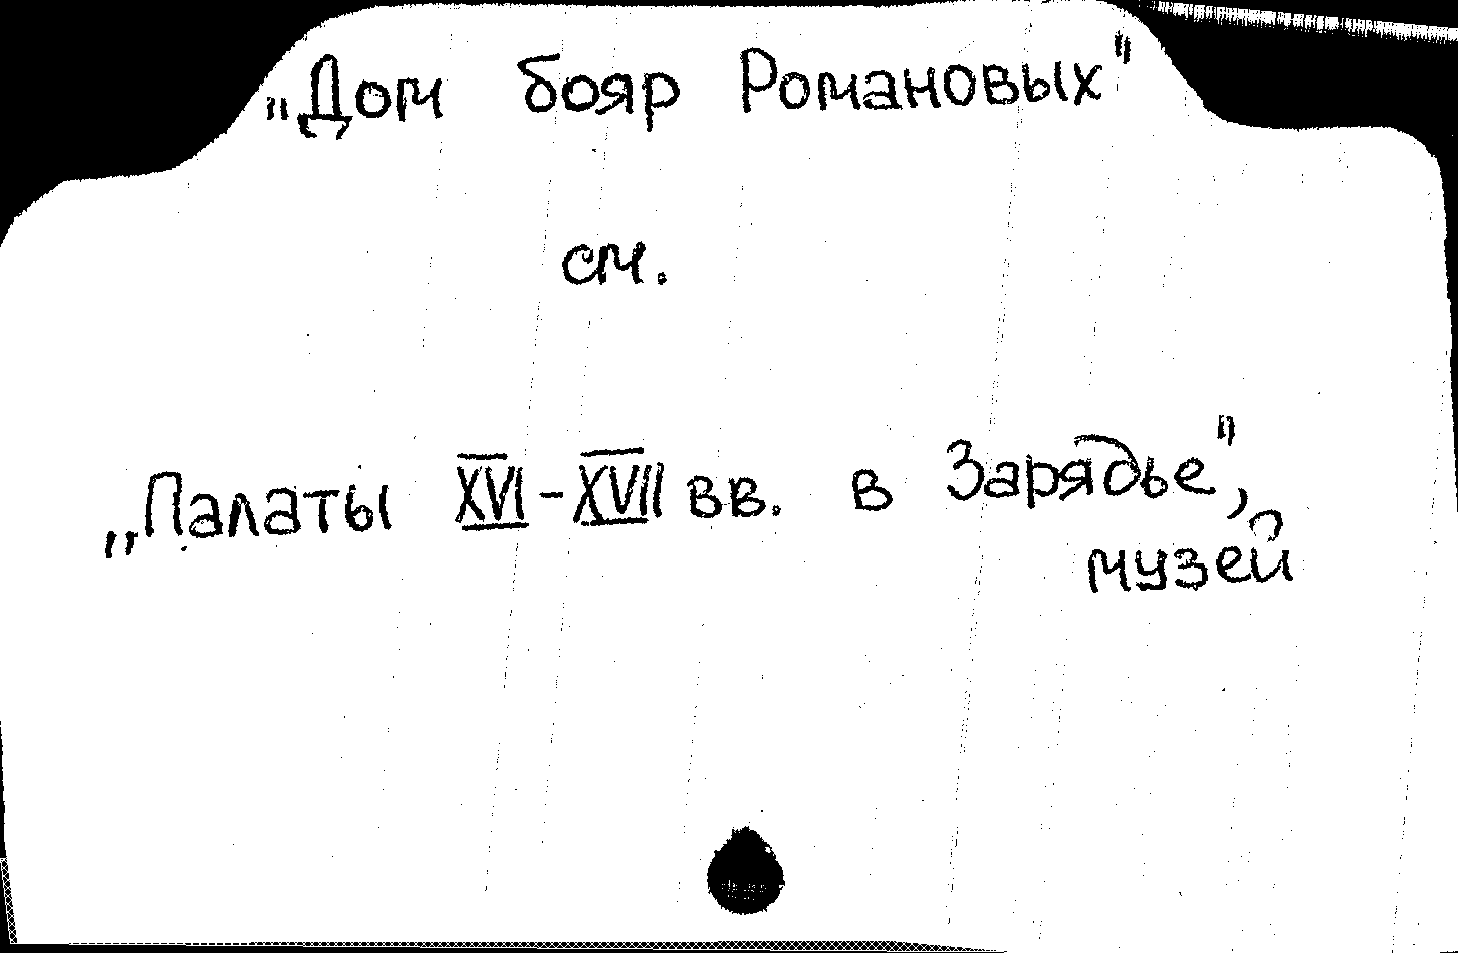 „Дом бояр Романовых"
см.
„Палаты XVI-XVII вв. в Зарядье",
музей